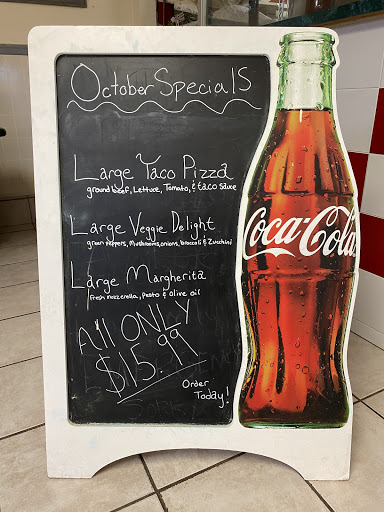 October Specials
Large Taco Pizza
ground beef, Lettuce, Tomato, & taco sauce
Large Veggie Delight
green peppers, Mushrooms, onions, broccoli & Zucchini
Large Margherita
Fresh mozzerella, Pesto & Olive oil
All ONLY
$15.99
Order
Today!
Coca-Cola